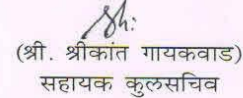 (श्री. श्रीकांत गायकवाड)
सहायक कुलसचिव